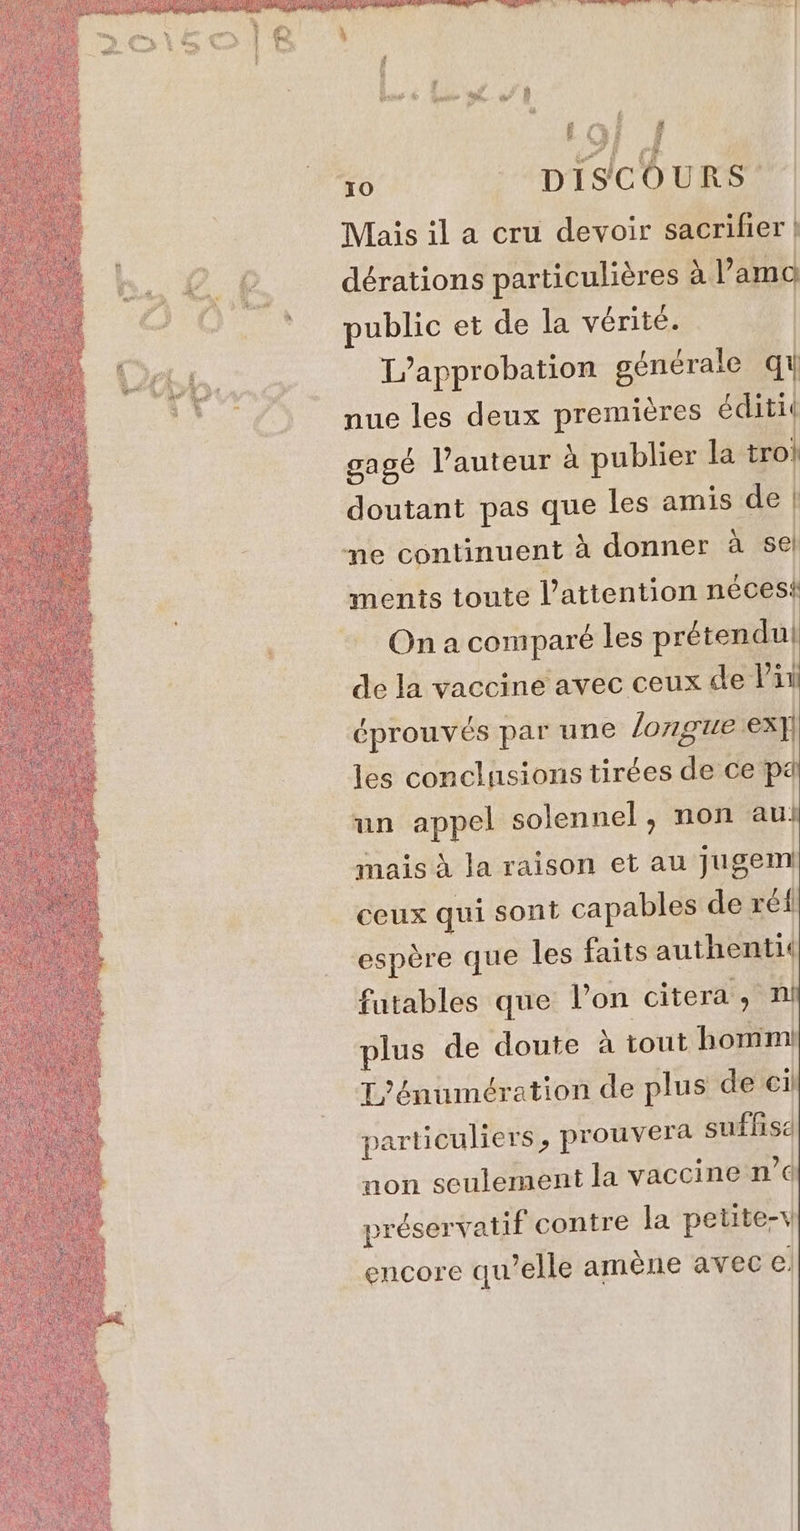 10 DISCOURS
Mais il a cru devoir sacrifier
dérations particulières à l'amo
public et de la vérité.
L'approbation générale qu
nue les deux premières éditi
gagé l'auteur à publier la troi
doutant pas que les amis de
ne continuent à donner à se
ments toute l'attention nécess
On a comparé les prétendu
de la vaccine avec ceux de l'in
éprouvés par une longue exp
les conclusions tirées de ce pa
un appel solennel, non aux
mais à la raison et au jugem
ceux qui sont capables de réf
espère que les faits authenti
futables que l'on citera, n
plus de doute à tout homm
L'énumération de plus de ci
particuliers, prouvera suffisa
non seulement la vaccine n'
préservatif contre la petite-v
encore qu'elle amène avec e